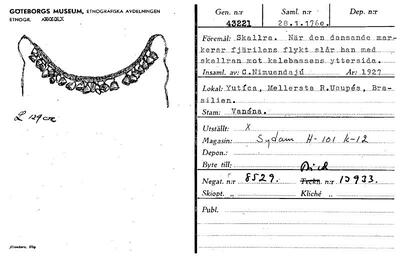 GÖTEBORGS MUSEUM, ETNOGRAFISKA AVDELNINGEN
ETNOGR.
L 129 cm
Gen. n:r
Saml. n:r
Dep. n:r
43221
28.1.176c.
Föremål: Skallra. När den dansande mar-
kerar fjärilens flykt slår han med
skallran mot kalebassens yttersida.
Insaml. av: C.Nimuendajú
År: 1927
Lokal: Yutíca, Mellersta R.Uaupés, Bra-
silien.
Stam: Vanána.
Utställt: X
Magasin: Sydam H-101 K-12
Depon.:
Byte till:
Negat. n:r 8529.
Teckn. n:r 13933.
Skiopt.
Kliché
Publ.